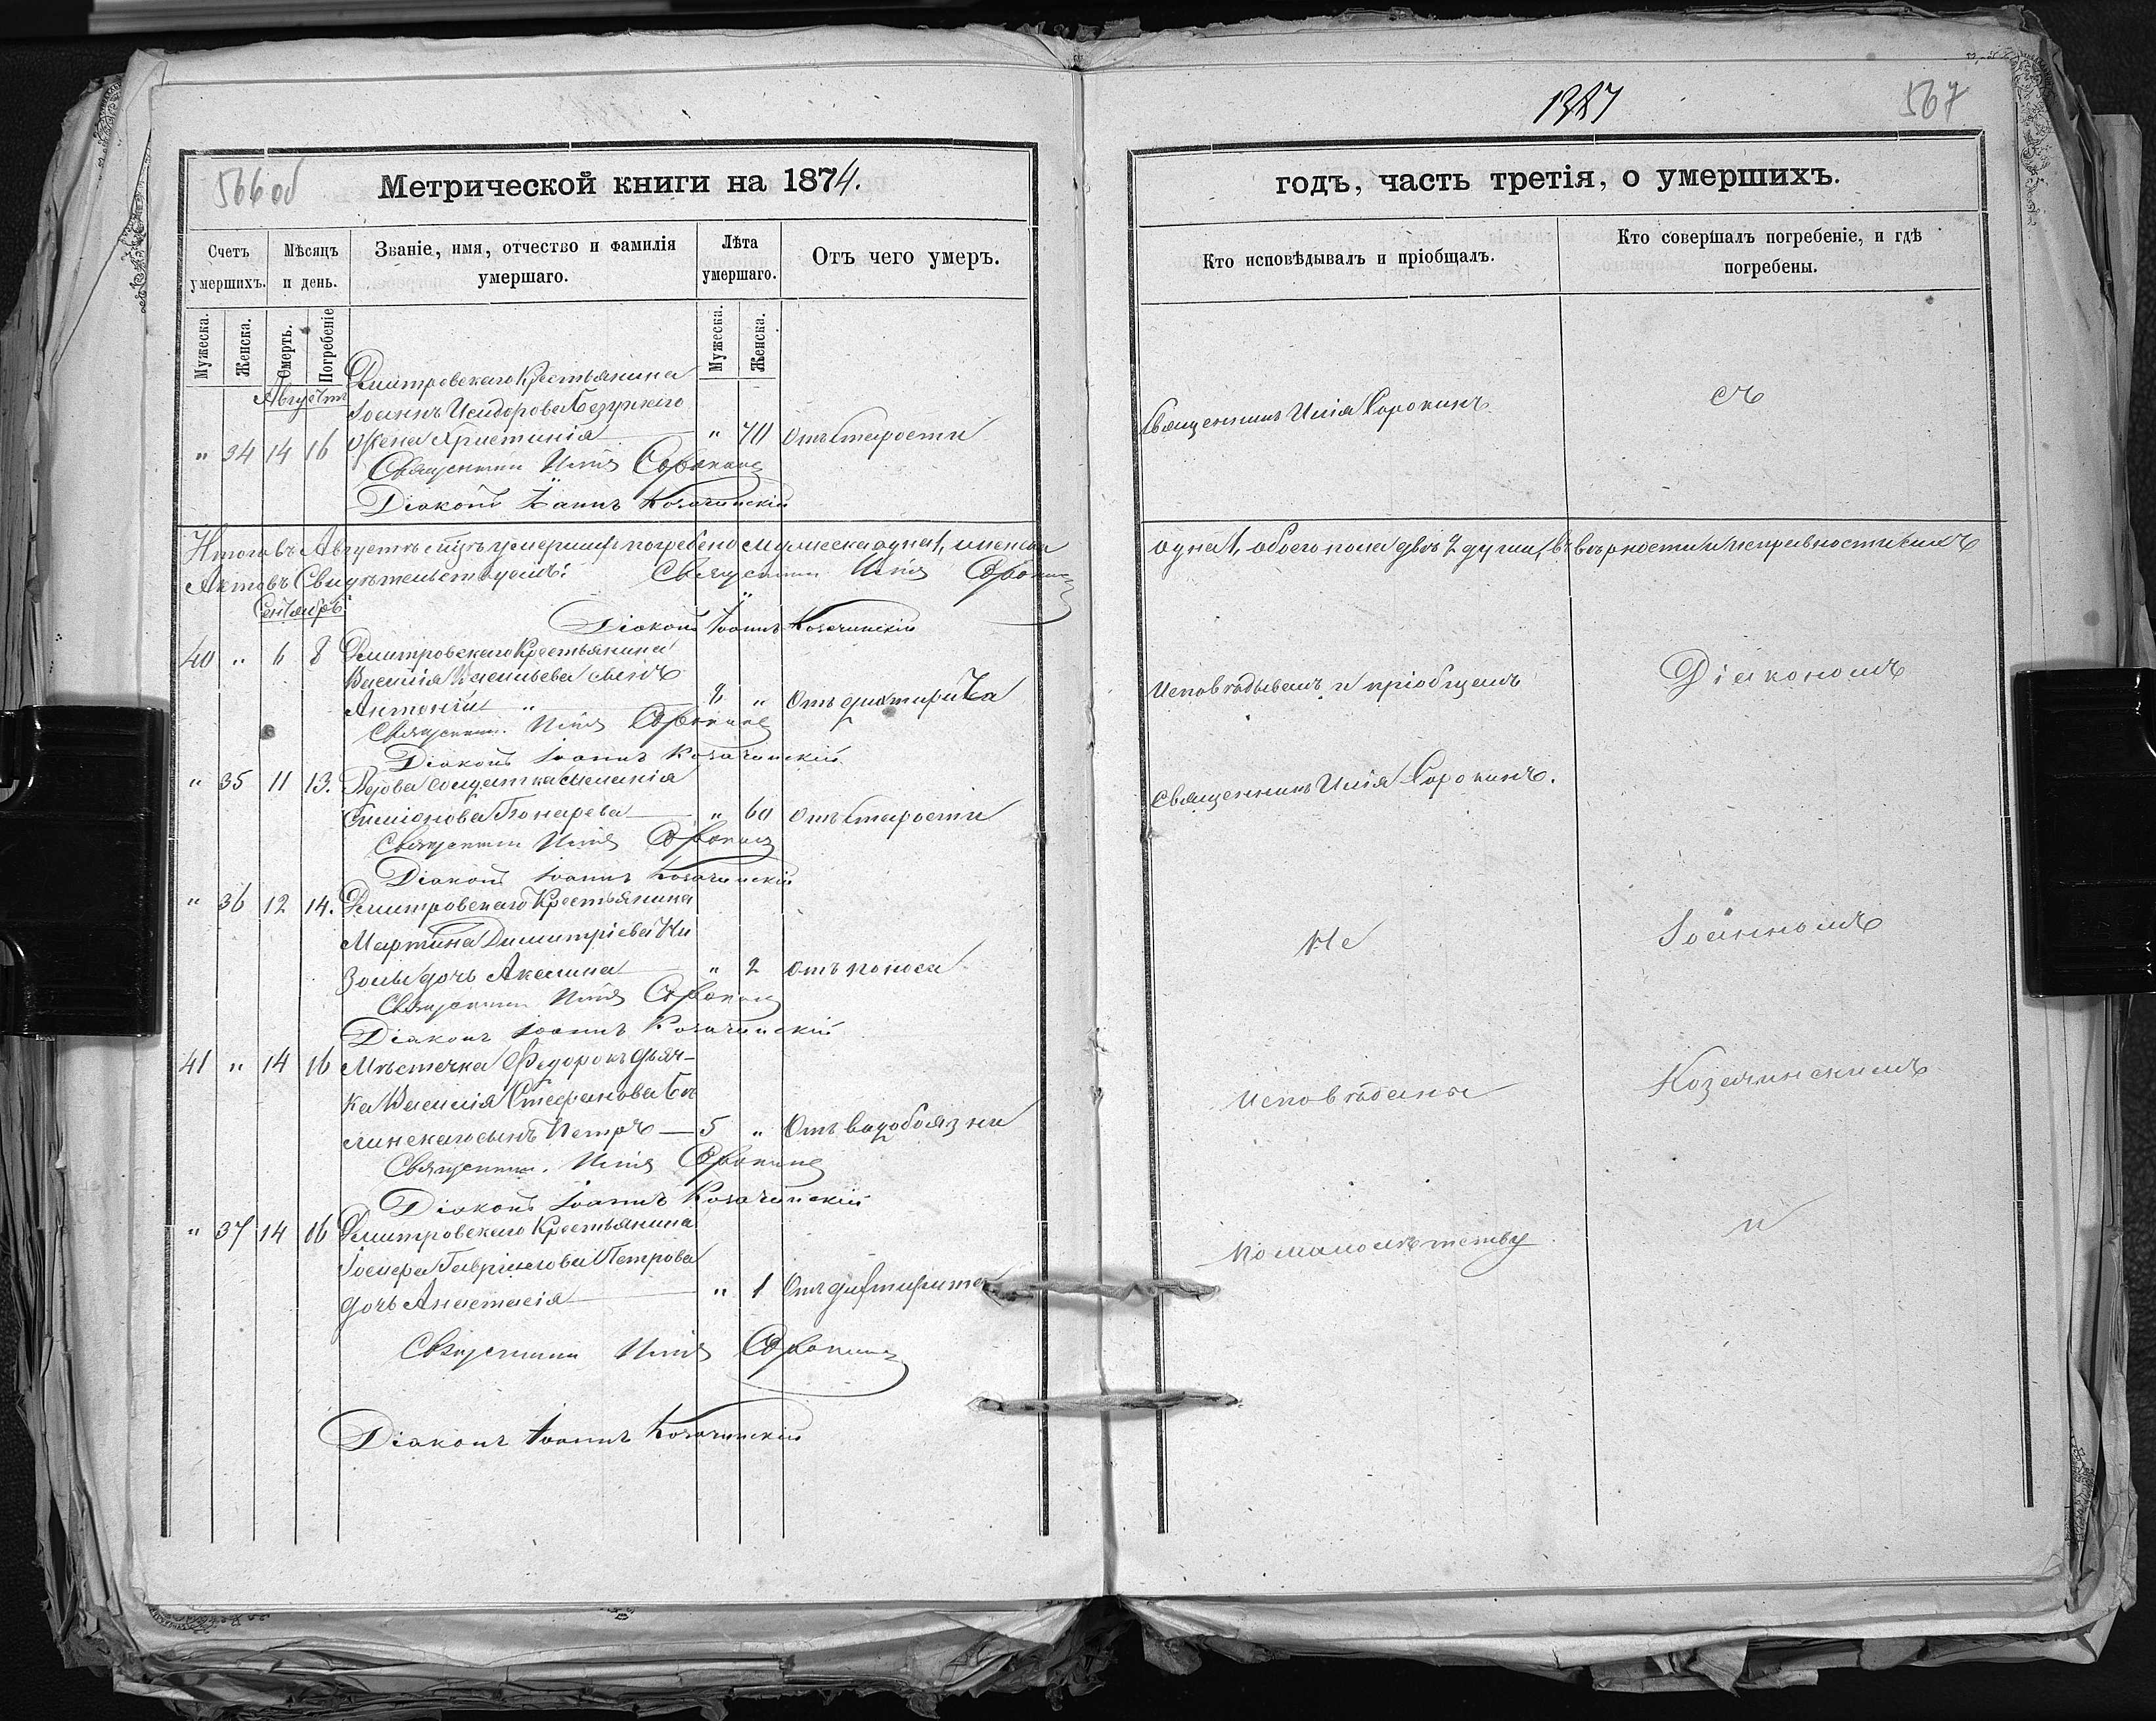 566 об
Метрической книги на 1874.
Счетъ умершихъ.
Мѣсяцъ и день.
Званіе, имя, отчество и фамилія умершаго.
Лѣта умершаго.
Отъ чего умеръ.
Мужеска.
Женска.
Смерть.
Погребеніе
Мужеска.
Женска.
Августъ
Димитровскаго Крестьянина
Іоанна Исидорова
" 34 14 16 жена Христинія " 70 Отъ старости
Священникъ Илія Сорокинъ
Діаконъ Іоаннъ Козачинскій
Итого въ Августѣ мцѣ умершихъ погребено мужеска одна 1, женска
Актовъ Свидѣтельствуемъ: Священникъ Илія Сорокинъ
Діаконъ Іоаннъ Козачинскій
Сентябрь
40 " 6 8 Димитровскаго Крестьянина
Василія Васильева сынъ
Антоній " 8 " Отъ дифтерита
Священник. Илія Сорокинъ
Діаконъ Іоаннъ Козачинскій
" 35 11 13. Вдова солдатка Меланія
Симіонова Гонарева " 60 Отъ старости
Священникъ Илія Сорокинъ
Діаконъ Іоаннъ Козачинскій
" 36 12 14. Димитровскаго Крестьянина
Мартина Димитріева Ни
золы дочь Акилина " 2 Отъ поноса
Священникъ Илія Сорокинъ
Діаконъ Іоаннъ Козачинскій
41 " 14 16 Мѣстечка Федоровъ дьяч-
ка Василія Стефанова Бѣ
линскаго сынъ Петръ 5 " Отъ водобоязни
Священник. Илія Сорокинъ
Діаконъ Іоаннъ Козачинскій
" 37 14 16 Димитровскаго Крестьянина
Іосифа Гавріилова Петрова
дочь Анастасія " 1 Отъ дифтерита
Священникъ Илія Сорокинъ
Діаконъ Іоаннъ Козачинскій
1387
567
годъ, часть третія, о умершихъ.
Кто исповѣдывалъ и пріобщалъ.
Кто совершалъ погребеніе, и гдѣ погребены.
Священникъ Илія Сорокинъ
съ
одна 1, обоего пола двѣ 2 души, въ вѣрности и исправности сихъ
Исповѣдывалъ и пріобщалъ
Діакономъ
Священникъ Илія Сорокинъ.
Не
Іоанномъ
Исповѣданы
Козачинскимъ
По малолѣтству
и